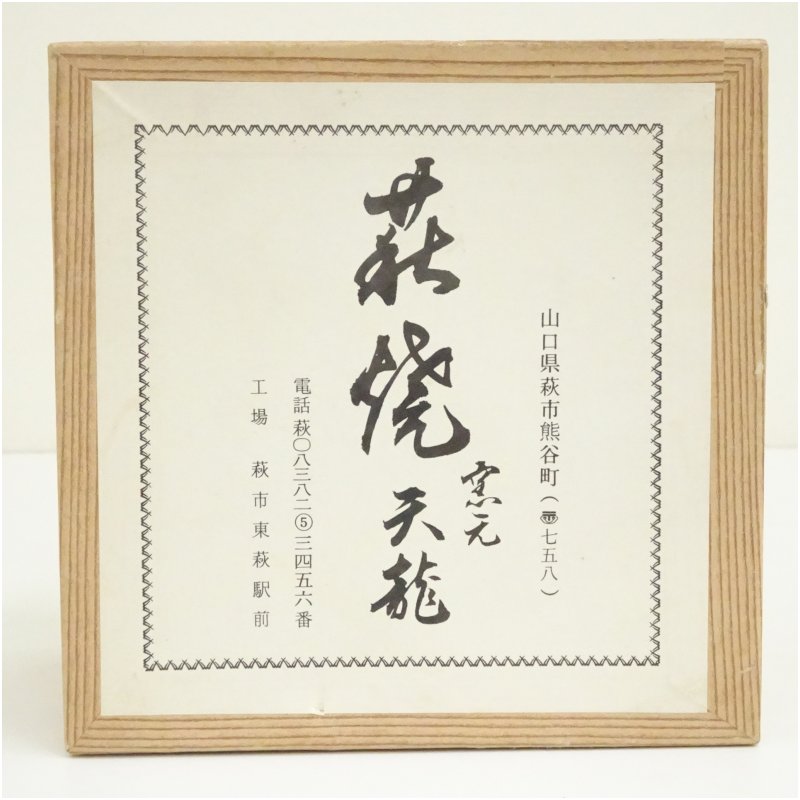 山口県萩市熊谷町(〠七五八)
萩焼
窯元
天龍
電話萩〇八三八二⑤三四五六番
工場 萩市東萩駅前